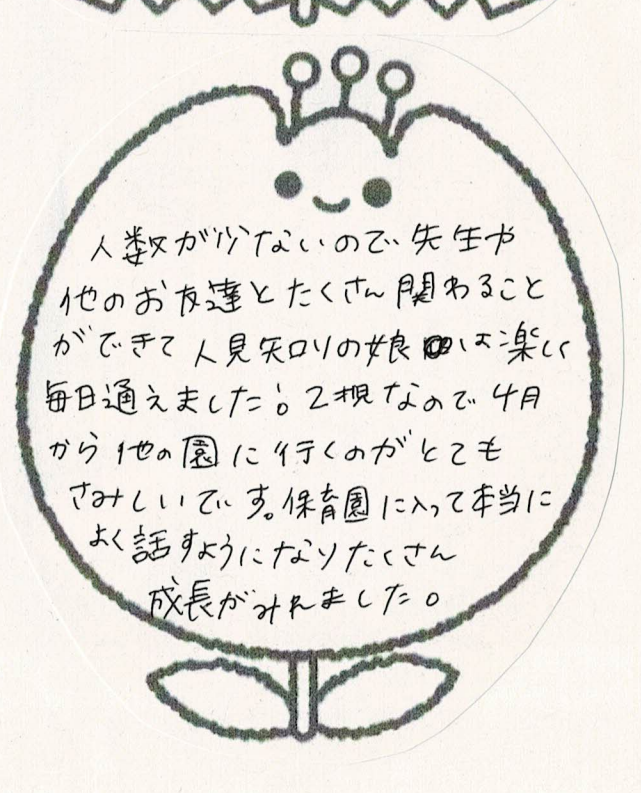 人数が少ないので先生や
他のお友達とたくさん関わること
ができて人見知りの娘は楽しく
毎日通えました!。2規なので4月
から他の園に行くのがとても
さみしいです。保育園に入って本当に
よく話すようになりたくさん
成長がみれました。